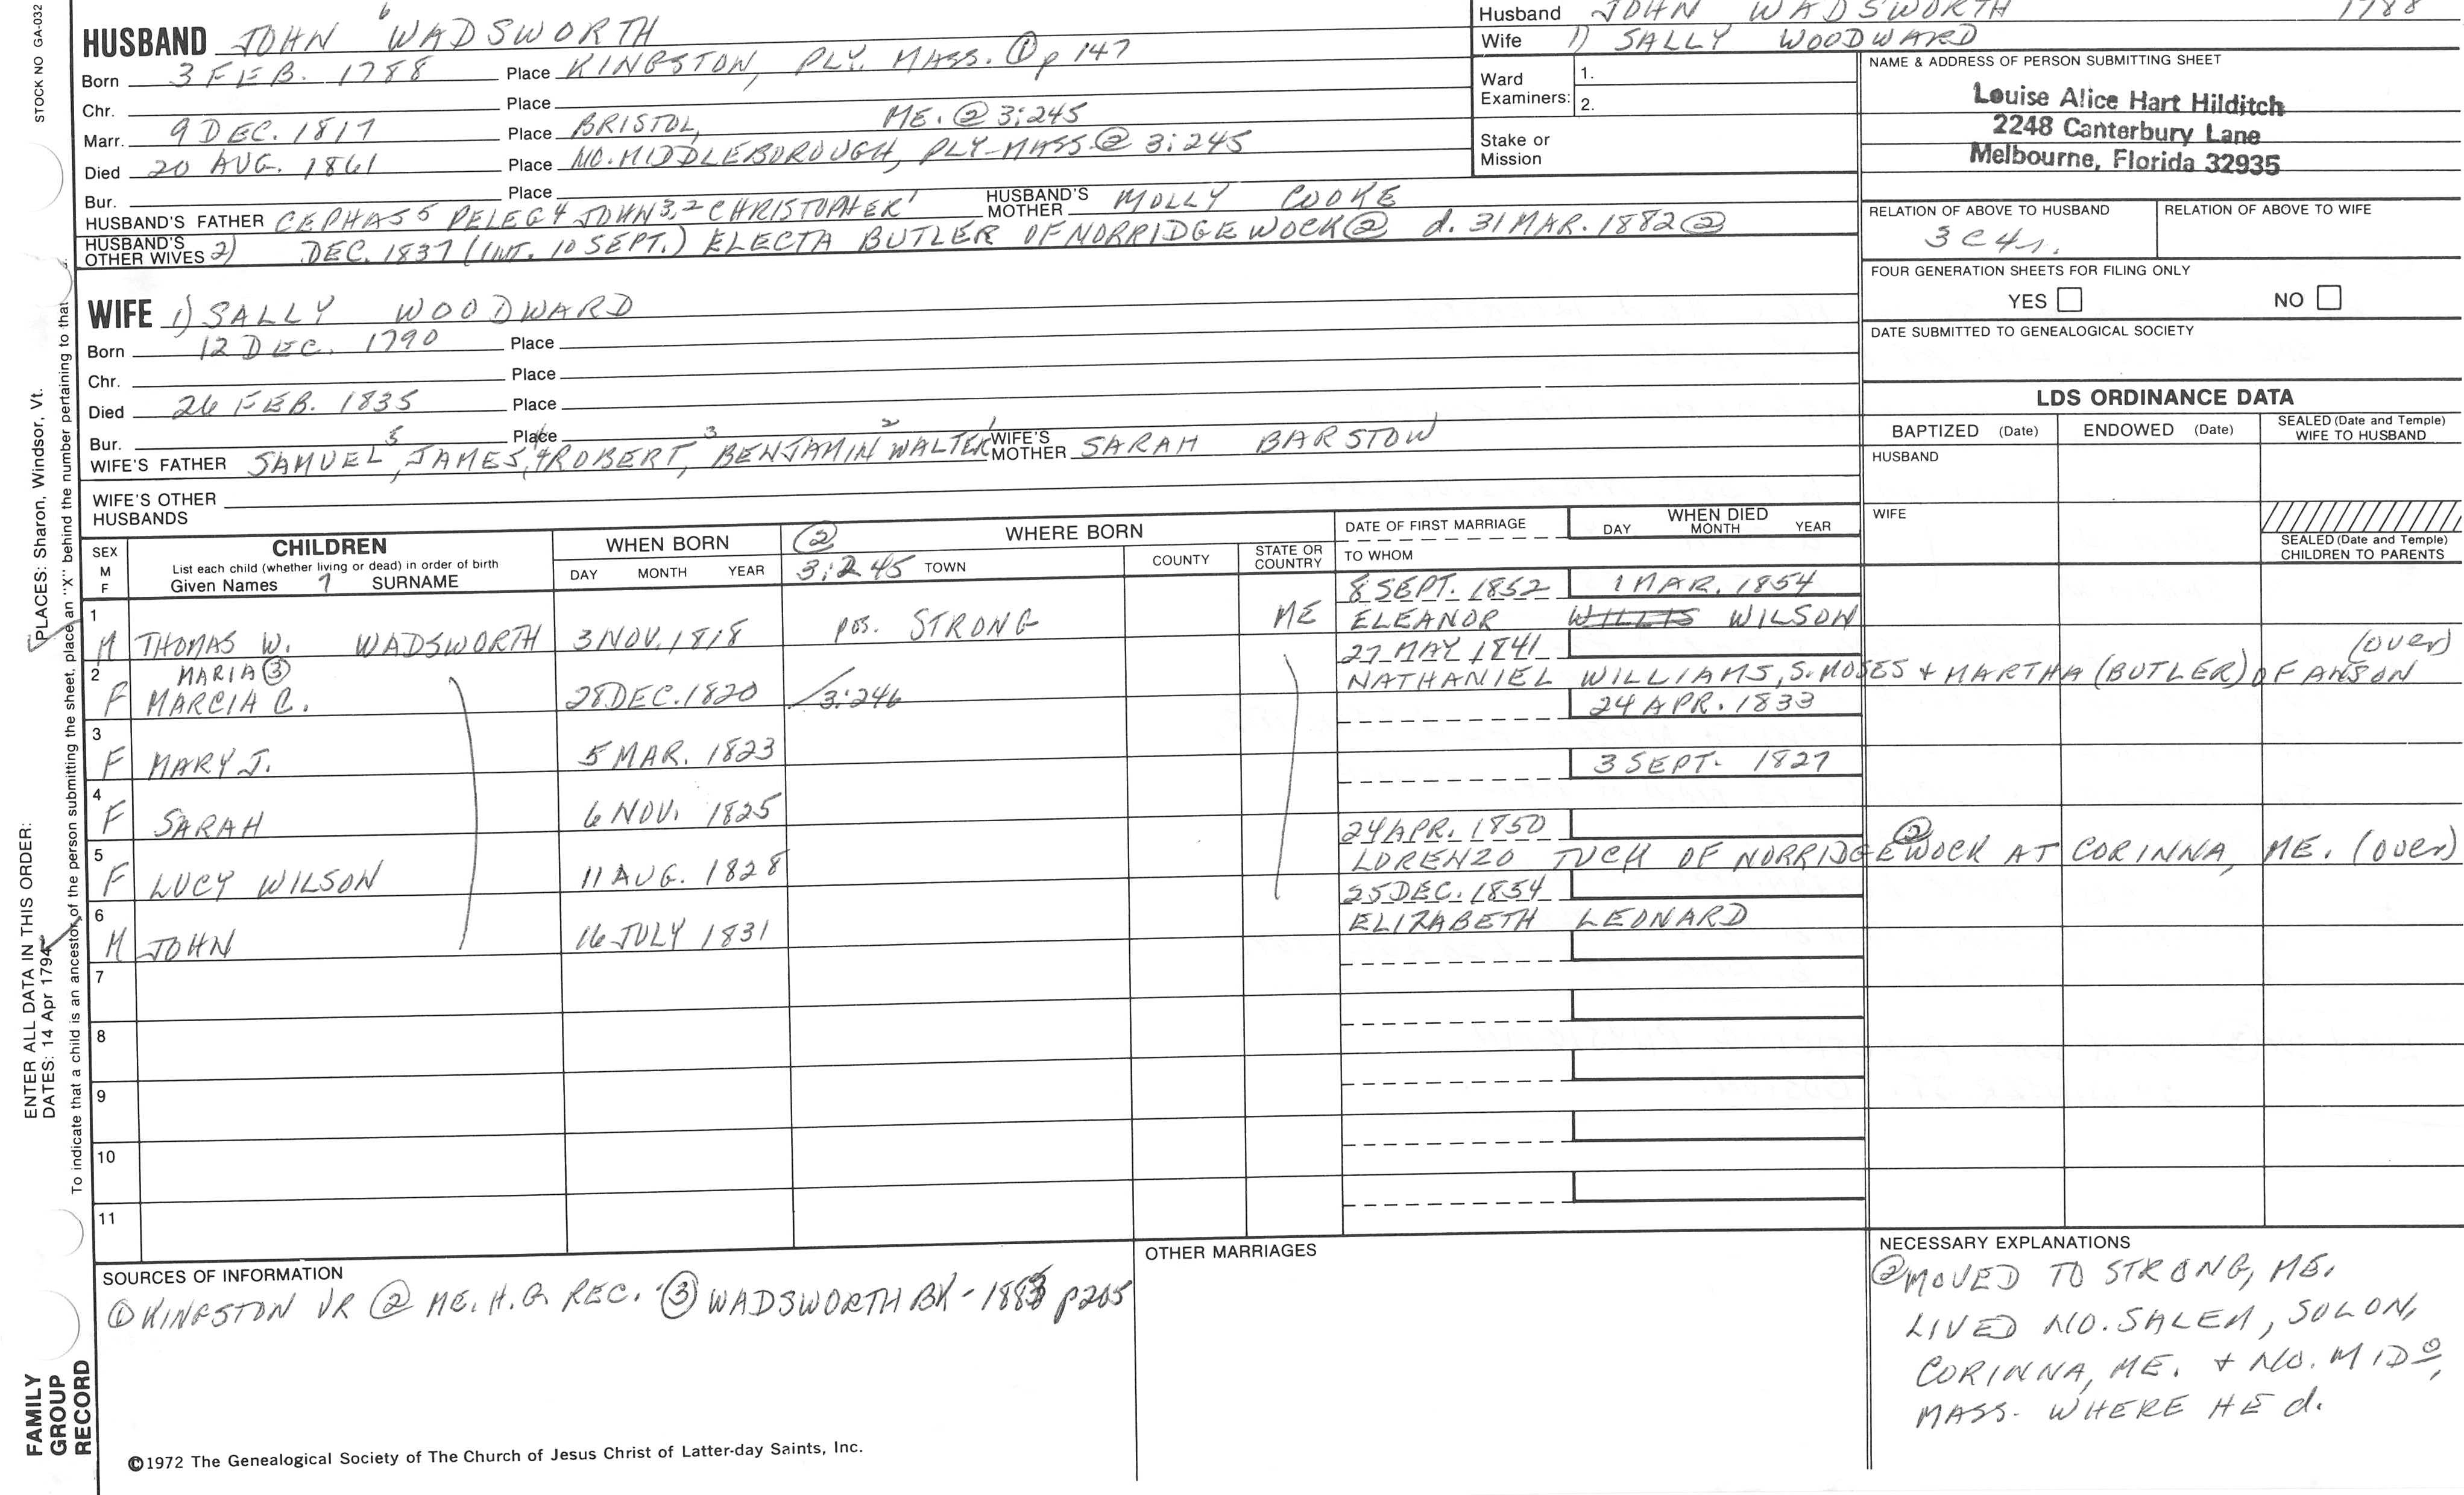 STOCK NO GA-032
HUSBAND JOHN 6 WADSWORTH
Born 3 FEB. 1788 Place KINGSTON, PLY. MASS. ① p 147
Chr. Place
Marr. 9 DEC. 1817 Place BRISTOL, ME. ② 3:245
Died 20 AUG. 1861 Place NO. MIDDLEBOROUGH, PLY-MASS. ② 3:245
Bur. Place
HUSBAND'S FATHER CEPHAS 5 PELEG 4 JOHN 3,2 CHRISTOPHER 1 HUSBAND'S MOTHER MOLLY COOKE
HUSBAND'S OTHER WIVES 2) DEC. 1837 (INT. 10 SEPT.) ELECTA BUTLER OF NORRIDGEWOCK ② d. 31 MAR. 1882 ②
Husband JOHN WADSWORTH 1788
Wife 1) SALLY WOODWARD
Ward Examiners: 1.
2.
Stake or Mission
NAME & ADDRESS OF PERSON SUBMITTING SHEET
Louise Alice Hart Hilditch
2248 Canterbury Lane
Melbourne, Florida 32935
RELATION OF ABOVE TO HUSBAND RELATION OF ABOVE TO WIFE
3C4r.
FOUR GENERATION SHEETS FOR FILING ONLY
YES NO
DATE SUBMITTED TO GENEALOGICAL SOCIETY
WIFE 1) SALLY WOODWARD
Born 12 DEC. 1790 Place
Chr. Place
Died 26 FEB. 1835 Place
Bur. Place
WIFE'S FATHER SAMUEL 5, JAMES, 4 ROBERT, 3 BENJAMIN 2 WALTER 1 WIFE'S MOTHER SARAH BARSTOW
WIFE'S OTHER HUSBANDS
LDS ORDINANCE DATA
BAPTIZED (Date) ENDOWED (Date) SEALED (Date and Temple) WIFE TO HUSBAND
HUSBAND
WIFE
SEALED (Date and Temple) CHILDREN TO PARENTS
SEX M F
CHILDREN
List each child (whether living or dead) in order of birth
Given Names 7 SURNAME
WHEN BORN
DAY MONTH YEAR
② WHERE BORN
3:245 TOWN COUNTY STATE OR COUNTRY
DATE OF FIRST MARRIAGE
TO WHOM
WHEN DIED
DAY MONTH YEAR
1 M THOMAS W. WADSWORTH 3 NOV. 1818 pos. STRONG ME 8 SEPT. 1852 1 MAR. 1854
ELEANOR WILLIS WILSON
2 F MARIA ③ MARCIA C. 28 DEC. 1820 3:246 27 MAY 1841
NATHANIEL WILLIAMS, S. MOSES + MARTHA (BUTLER) OF ANSON (over)
3 F MARY J. 5 MAR. 1823 24 APR. 1833
4 F SARAH 6 NOV. 1825 3 SEPT. 1827
5 F LUCY WILSON 11 AUG. 1828 24 APR. 1850
LORENZO TUCK OF NORRIDGEWOCK ② AT CORINNA, ME. (over)
6 M JOHN 16 JULY 1831 25 DEC. 1854
ELIZABETH LEONARD
7
8
9
10
11
SOURCES OF INFORMATION
① KINGSTON VR ② ME. H.G. REC. ③ WADSWORTH BK - 1883 p205
OTHER MARRIAGES
NECESSARY EXPLANATIONS
② MOVED TO STRONG, ME.
LIVED NO. SALEM, SOLON,
CORINNA, ME. + NO. MIDº,
MASS. WHERE HE d.
©1972 The Genealogical Society of The Church of Jesus Christ of Latter-day Saints, Inc.
FAMILY GROUP RECORD
ENTER ALL DATA IN THIS ORDER:
DATES: 14 Apr 1794
PLACES: Sharon, Windsor, Vt.
To indicate that a child is an ancestor of the person submitting the sheet, place an "X" behind the number pertaining to that